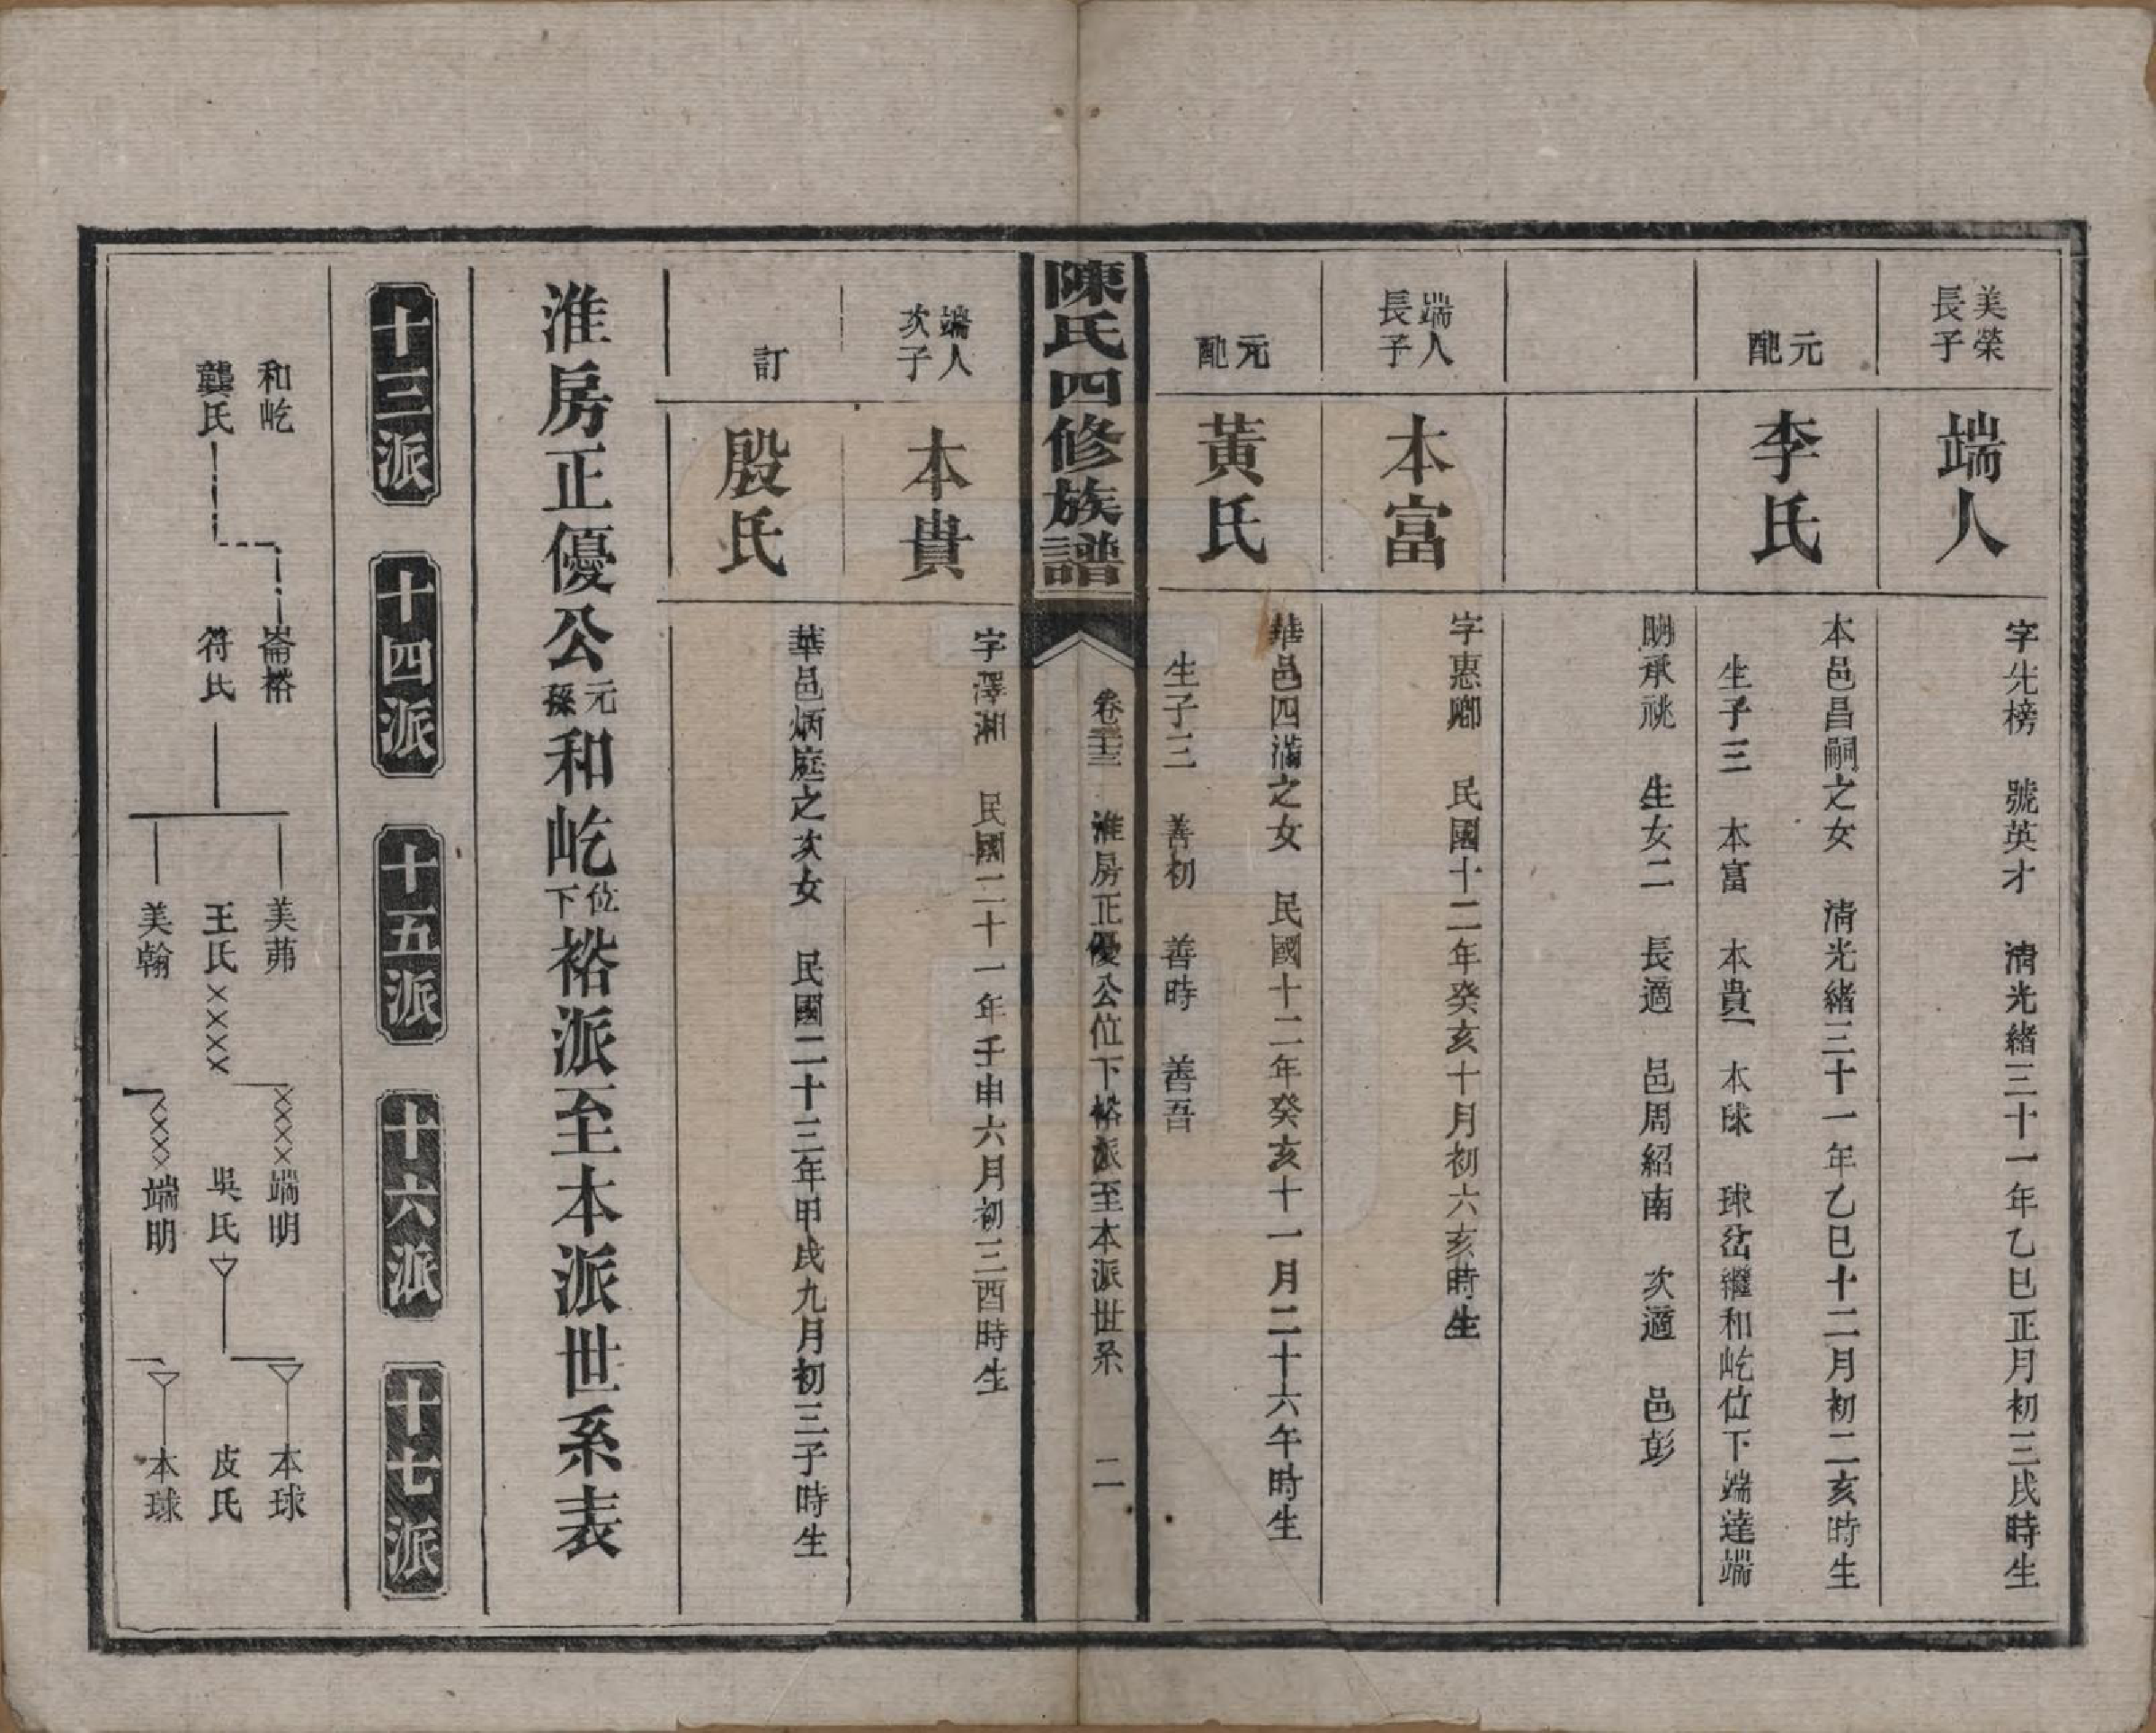 美榮長子
端人
字先榜　號英才　清光緒三十一年乙巳正月初三戌時生
元配
李氏
本邑昌嗣之女　清光緒三十一年乙巳十二月初二亥時生
生子三　本富　本貴　本球　球出繼和屹位下端達端
明承祧　生女二　長適　邑周紹南　次適　邑彭
端人長子
本富
字惠卿　民國十二年癸亥十月初六亥時生
元配
黃氏
華邑四滿之女　民國十二年癸亥十一月二十六午時生
生子三　善初　善時　善吾
陳氏四修族譜
卷三　淮房正優公位下裕派至本派世系　二
端人次子
本貴
字澤湘　民國二十一年壬申六月初三酉時生
訂
殷氏
華邑炳庭之次女　民國二十三年甲戌九月初三子時生
淮房正優公元孫和屹位下裕派至本派世系表
十三派　十四派　十五派　十六派　十七派
和屹　崙裕　美茀　端明　本球
龔氏　符氏　王氏　吳氏　皮氏
美翰　端明　本球